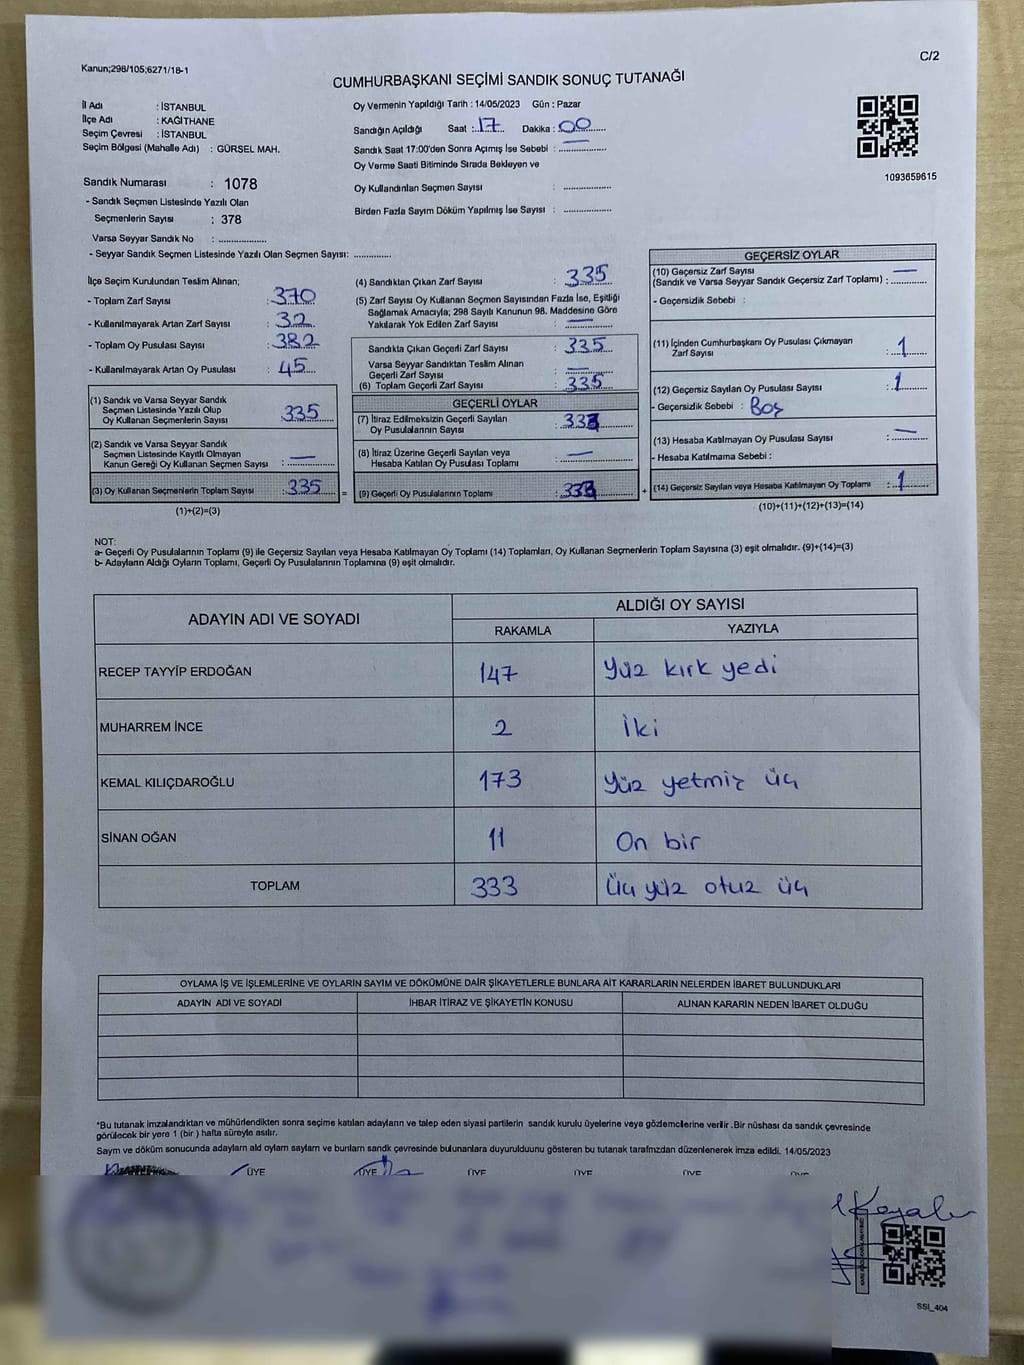 Kanun;298/105;6271/18-1
C/2
CUMHURBAŞKANI SEÇİMİ SANDIK SONUÇ TUTANAĞI
İl Adı : İSTANBUL
İlçe Adı : KAĞITHANE
Seçim Çevresi : İSTANBUL
Seçim Bölgesi (Mahalle Adı) : GÜRSEL MAH.
Sandık Numarası : 1078
- Sandık Seçmen Listesinde Yazılı Olan
Seçmenlerin Sayısı : 378
Varsa Seyyar Sandık No : ..................
- Seyyar Sandık Seçmen Listesinde Yazılı Olan Seçmen Sayısı: ..............
Oy Vermenin Yapıldığı Tarih : 14/05/2023 Gün : Pazar
Sandığın Açıldığı Saat : 17 Dakika : 00
Sandık Saat 17:00'den Sonra Açımış İse Sebebi : —
Oy Verme Saati Bitiminde Sırada Bekleyen ve
Oy Kullandırılan Seçmen Sayısı : ..................
Birden Fazla Sayım Döküm Yapılmış İse Sayısı : ..................
1093659615
İlçe Seçim Kurulundan Teslim Alınan;
- Toplam Zarf Sayısı : 370
- Kullanılmayarak Artan Zarf Sayısı : 32
- Toplam Oy Pusulası Sayısı : 382
- Kullanılmayarak Artan Oy Pusulası : 45
(1) Sandık ve Varsa Seyyar Sandık
Seçmen Listesinde Yazılı Olup
Oy Kullanan Seçmenlerin Sayısı : 335
(2) Sandık ve Varsa Seyyar Sandık
Seçmen Listesinde Kayıtlı Olmayan
Kanun Gereği Oy Kullanan Seçmen Sayısı : —
(3) Oy Kullanan Seçmenlerin Toplam Sayısı : 335
(1)+(2)=(3)
=
(4) Sandıktan Çıkan Zarf Sayısı : 335
(5) Zarf Sayısı Oy Kullanan Seçmen Sayısından Fazla İse, Eşitliği
Sağlamak Amacıyla; 298 Sayılı Kanunun 98. Maddesine Göre
Yakılarak Yok Edilen Zarf Sayısı : —
Sandıkta Çıkan Geçerli Zarf Sayısı : 335
Varsa Seyyar Sandıktan Teslim Alınan
Geçerli Zarf Sayısı : —
(6) Toplam Geçerli Zarf Sayısı : 335
GEÇERLİ OYLAR
(7) İtiraz Edilmeksizin Geçerli Sayılan
Oy Pusulalarının Sayısı : 333
(8) İtiraz Üzerine Geçerli Sayılan veya
Hesaba Katılan Oy Pusulası Toplamı : —
(9) Geçerli Oy Pusulalarının Toplamı : 333
+
GEÇERSİZ OYLAR
(10) Geçersiz Zarf Sayısı
(Sandık ve Varsa Seyyar Sandık Geçersiz Zarf Toplamı) : —
- Geçersizlik Sebebi :
(11) İçinden Cumhurbaşkanı Oy Pusulası Çıkmayan
Zarf Sayısı : 1
(12) Geçersiz Sayılan Oy Pusulası Sayısı : 1
- Geçersizlik Sebebi : Boş
(13) Hesaba Katılmayan Oy Pusulası Sayısı : —
- Hesaba Katılmama Sebebi :
(14) Geçersiz Sayılan veya Hesaba Katılmayan Oy Toplamı : 1
(10)+(11)+(12)+(13)=(14)
NOT:
a- Geçerli Oy Pusulalarının Toplamı (9) ile Geçersiz Sayılan veya Hesaba Katılmayan Oy Toplamı (14) Toplamları, Oy Kullanan Seçmenlerin Toplam Sayısına (3) eşit olmalıdır. (9)+(14)=(3)
b- Adayların Aldığı Oyların Toplamı, Geçerli Oy Pusulalarının Toplamına (9) eşit olmalıdır.
ADAYIN ADI VE SOYADI
ALDIĞI OY SAYISI
RAKAMLA YAZIYLA
RECEP TAYYİP ERDOĞAN 147 Yüz kırk yedi
MUHARREM İNCE 2 İki
KEMAL KILIÇDAROĞLU 173 Yüz yetmiş üç
SİNAN OĞAN 11 On bir
TOPLAM 333 Üç yüz otuz üç
OYLAMA İŞ VE İŞLEMLERİNE VE OYLARIN SAYIM VE DÖKÜMÜNE DAİR ŞİKAYETLERLE BUNLARA AİT KARARLARIN NELERDEN İBARET BULUNDUKLARI
ADAYIN ADI VE SOYADI İHBAR İTİRAZ VE ŞİKAYETİN KONUSU ALINAN KARARIN NEDEN İBARET OLDUĞU
*Bu tutanak imzalandıktan ve mühürlendikten sonra seçime katılan adayların ve talep eden siyasi partilerin sandık kurulu üyelerine veya gözlemcilerine verilir. Bir nüshası da sandık çevresinde
görülecek bir yere 1 (bir ) hafta süreyle asılır.
Sayım ve döküm sonucunda adayların aldı oyların sayların ve bunların sandk çevresinde bulunanlara duyurulduunu gösteren bu tutanak tarafmzdan düzenlenerek imza edildi. 14/05/2023
ÜYE ÜYE ÜYE ÜYE ÜYE ÜYE
SSI_404